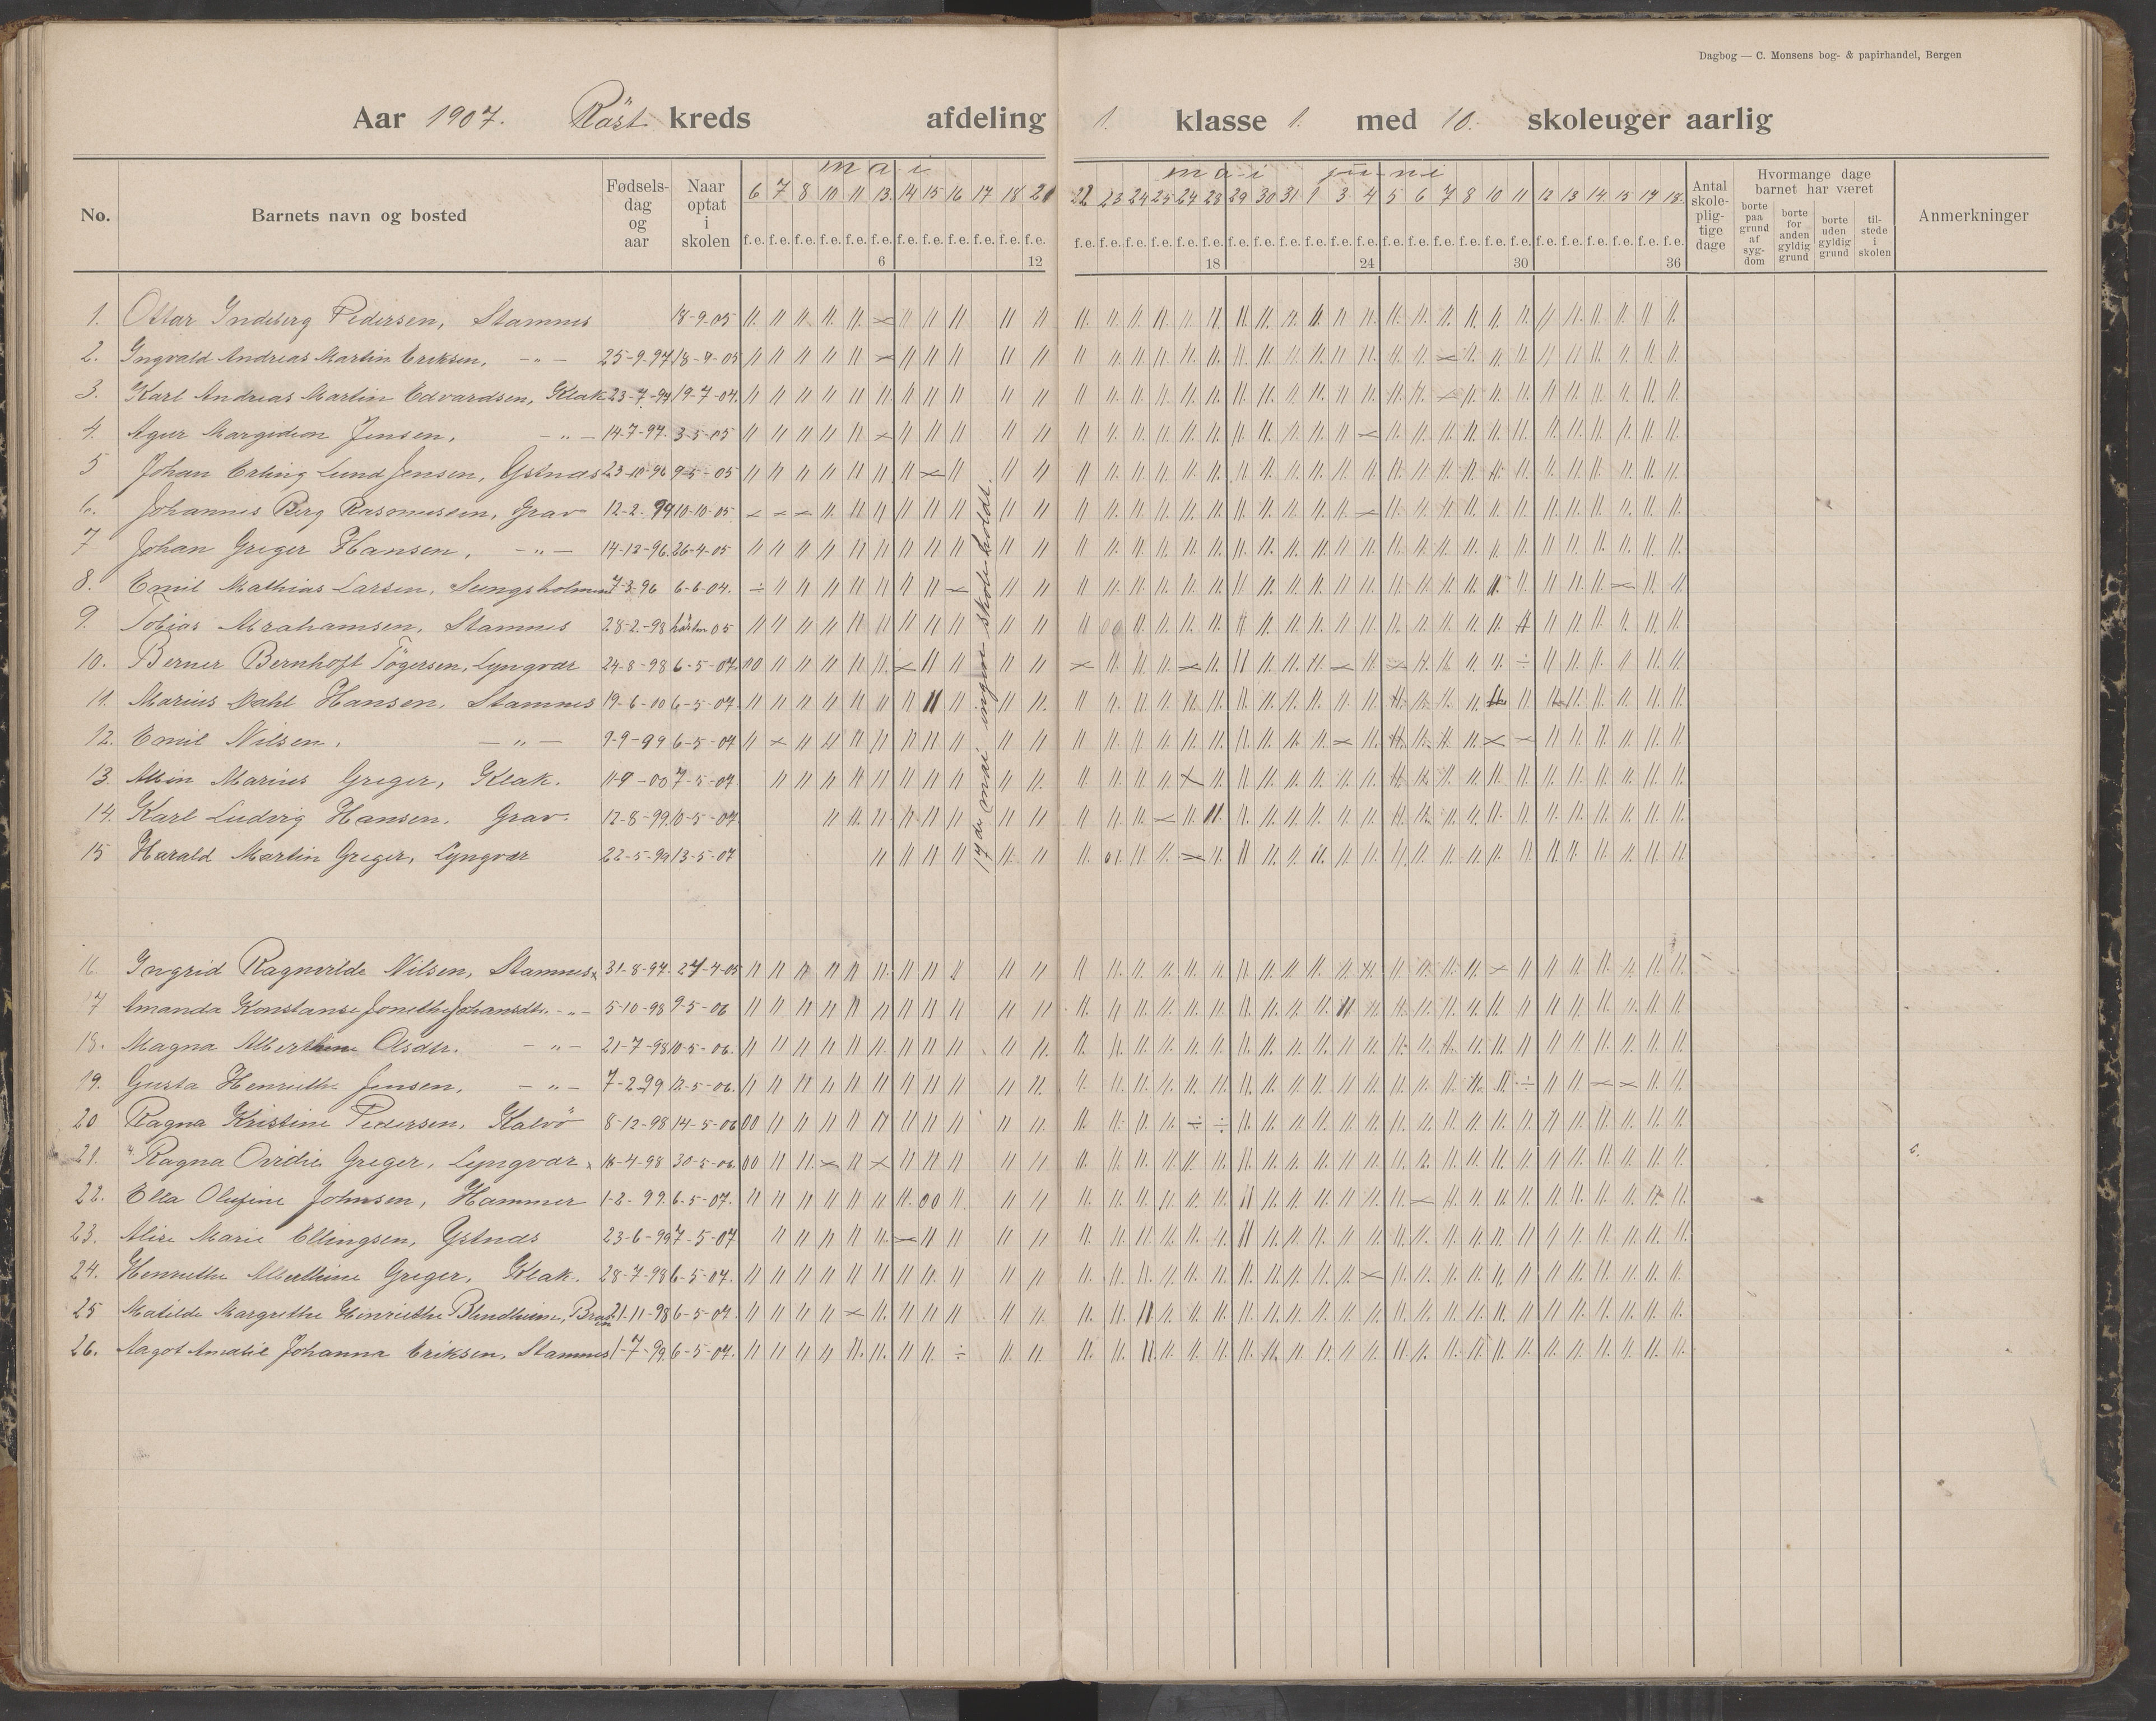 Dagbog — C. Monsens bog- & papirhandel, Bergen
Aar 1907. Röst kreds afdeling 1. klasse 1. med 10. skoleuger aarlig
No. Barnets navn og bosted Fødsels-dag og aar Naar optat i skolen mai mai juni Antal skole-plig-tige dage Hvormange dage barnet har været Anmerkninger
6 7 8 10 11 13 14 15 16 17 18 21 22 23 24 25 27 28 29 30 31 1 3 4 5 6 7 8 10 11 12 13 14 15 17 18
borte paa grund af syg-dom borte for anden gyldig grund borte uden gyldig grund til-stede i skolen
f. e. f. e. f. e. f. e. f. e. f. e. f. e. f. e. f. e. f. e. f. e. f. e. f. e. f. e. f. e. f. e. f. e. f. e. f. e. f. e. f. e. f. e. f. e. f. e. f. e. f. e. f. e. f. e. f. e. f. e. f. e. f. e. f. e. f. e. f. e. f. e.
6 12 18 24 30 36
1. Ottar Indeberg Pedersen, Stamnes 18-9-05
2. Ingvald Andreas Martin Eriksen, -"- 25-9-97 18-9-05
3. Karl Andreas Martin Edvardsen, Klak 23-7-94 19-7-04.
4. Agur Margidion Jensen, -"- 14-7-97. 3-5-05
5 Johan Erling Lund Jensen, Ystnes 23-10-96 9-5-05
6. Johannes Berg Rasmussen, Grav 12-2-99 10-10-05
7 Johan Greger Hansen, -"- 14-12-96. 26-4-05
8. Emil Mathias Larsen, 7-3-96 6-6-04.
9. Tobias Abrahamsen, Stamnes 28-2-98 hösten 05
10. Berner Bernhoft Tögersen, Lyngvær 24-8-98 6-5-07.
11. Marius Dahl Hansen, Stamnes 19-6-00 6-5-07.
12. Emil Nilsen, -"- 9-9-99 6-5-07
13. Albin Marius Greger, Klak. 11-9-00 7-5-07
14. Karl Ludvig Hansen. Grav. 12-8-99 10-5-07
15 Harald Martin Greger, Lyngvær 22-5-99 13-5-07
17de mai ingen skole holdt.
16. Ingrid Ragnvilde Nilsen, Stamnes 31-8-97. 27-4-05
17 Amanda Konstanse Jonethe Johansdtr. -"- 5-10-98 9-5-06
18. Magna Alberthine Olsdtr. -"- 21-7-98 10-5-06.
19. Gusta Henriethe Jensen, -"- 7-2-99 12-5-06.
20 Ragna Kristine Pedersen, Kalvö 8-12-98 14-5-06
21. Ragna Ovidie Greger, Lyngvær 16-4-98 30-5-06.
22. Ella Olufine Johnsen, Hammer 1-2-99. 6-5-07.
23. Alise Marie Ellingsen, Ystnes 23-6-99 7-5-07
24. Henriethe Alberthine Greger, Klak. 28-7-98 6-5-07.
25 Matilde Margrethe Henriethe Blindheim, 21-11-98 6-5-07
26. Aagot Amalie Johanna Eriksen, Stamnes 1-7-99. 6-5-07.